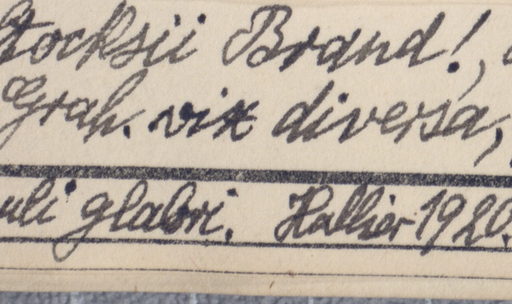 Stocksii Brand!,
Grah. vix diversa,
uli glabri. Hallier 1920.